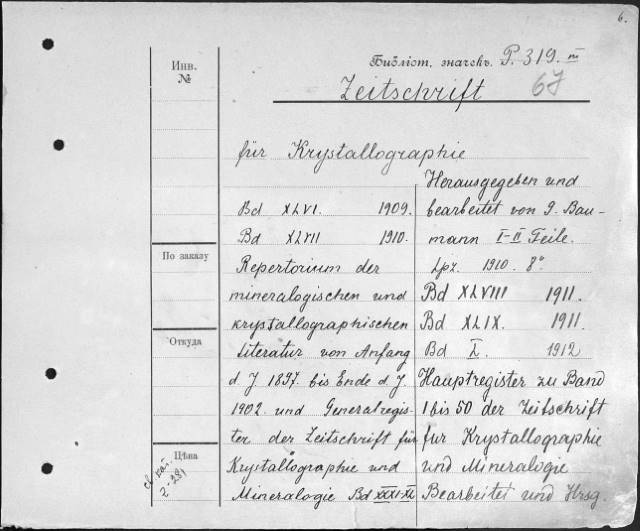 6.
Инв.
№
Библіот. значекъ. P. 319. III
67
Zeitschrift
für Krystallographie
Bd XLVI. 1909.
Bd XLVII 1910.
Repertorium der
mineralogischen und
krystallographischen
Literatur von Anfang
d. J. 1897. bis Ende d. J.
1902. und Generalregis-
ter der Zeitschrift für
Krystallographie und
Mineralogie Bd XXXI-XL
Herausgegeben und
bearbeitet von J. Bau-
mann I-II Teile.
Lpz. 1910. 8°
Bd XLVIII 1911.
Bd XLIX. 1911.
Bd L. 1912
Hauptregister zu Band
1 bis 50 der Zeitschrift
für Krystallographie
und Mineralogie
Bearbeitet und Hrsg.
По заказу
Откуда
Цѣна